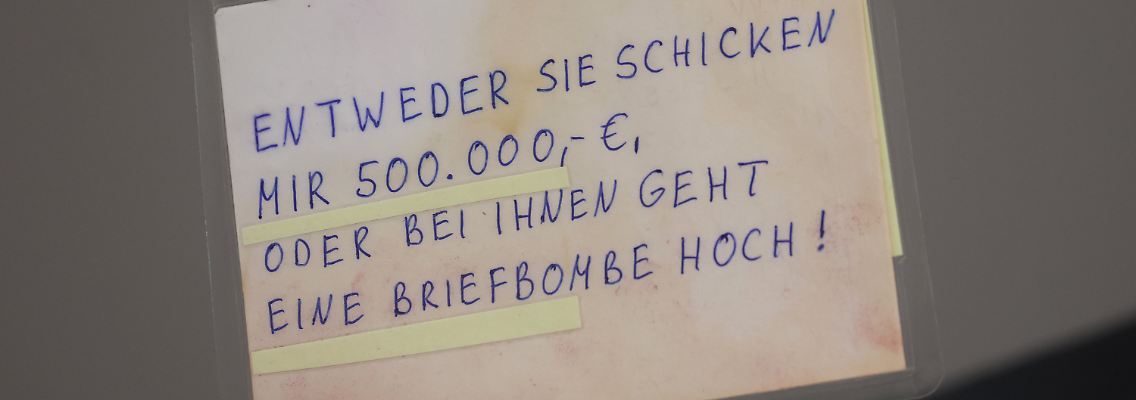 ENTWEDER SIE SCHICKEN
MIR 500.000,- €,
ODER BEI IHNEN GEHT
EINE BRIEFBOMBE HOCH!